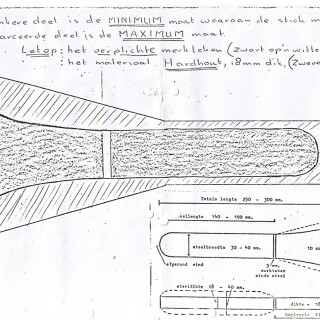 nkere deel is de MINIMUM maat waaraan de stick m
arceerde deel is de MAXIMUM maat.
Letop: het verplichte merkteken (zwart op'n witte
: het materiaal. Hardhout, 18mm dik, (2 weve
Totale lengte 250 - 300 mm.
vellengte 140 - 190 mm.
steelbreedte 30 - 40 mm.
10 m
afgerond eind
3 mm.
merkteken
einde steel
steeldikte 18 40 mm.
dikte = 18